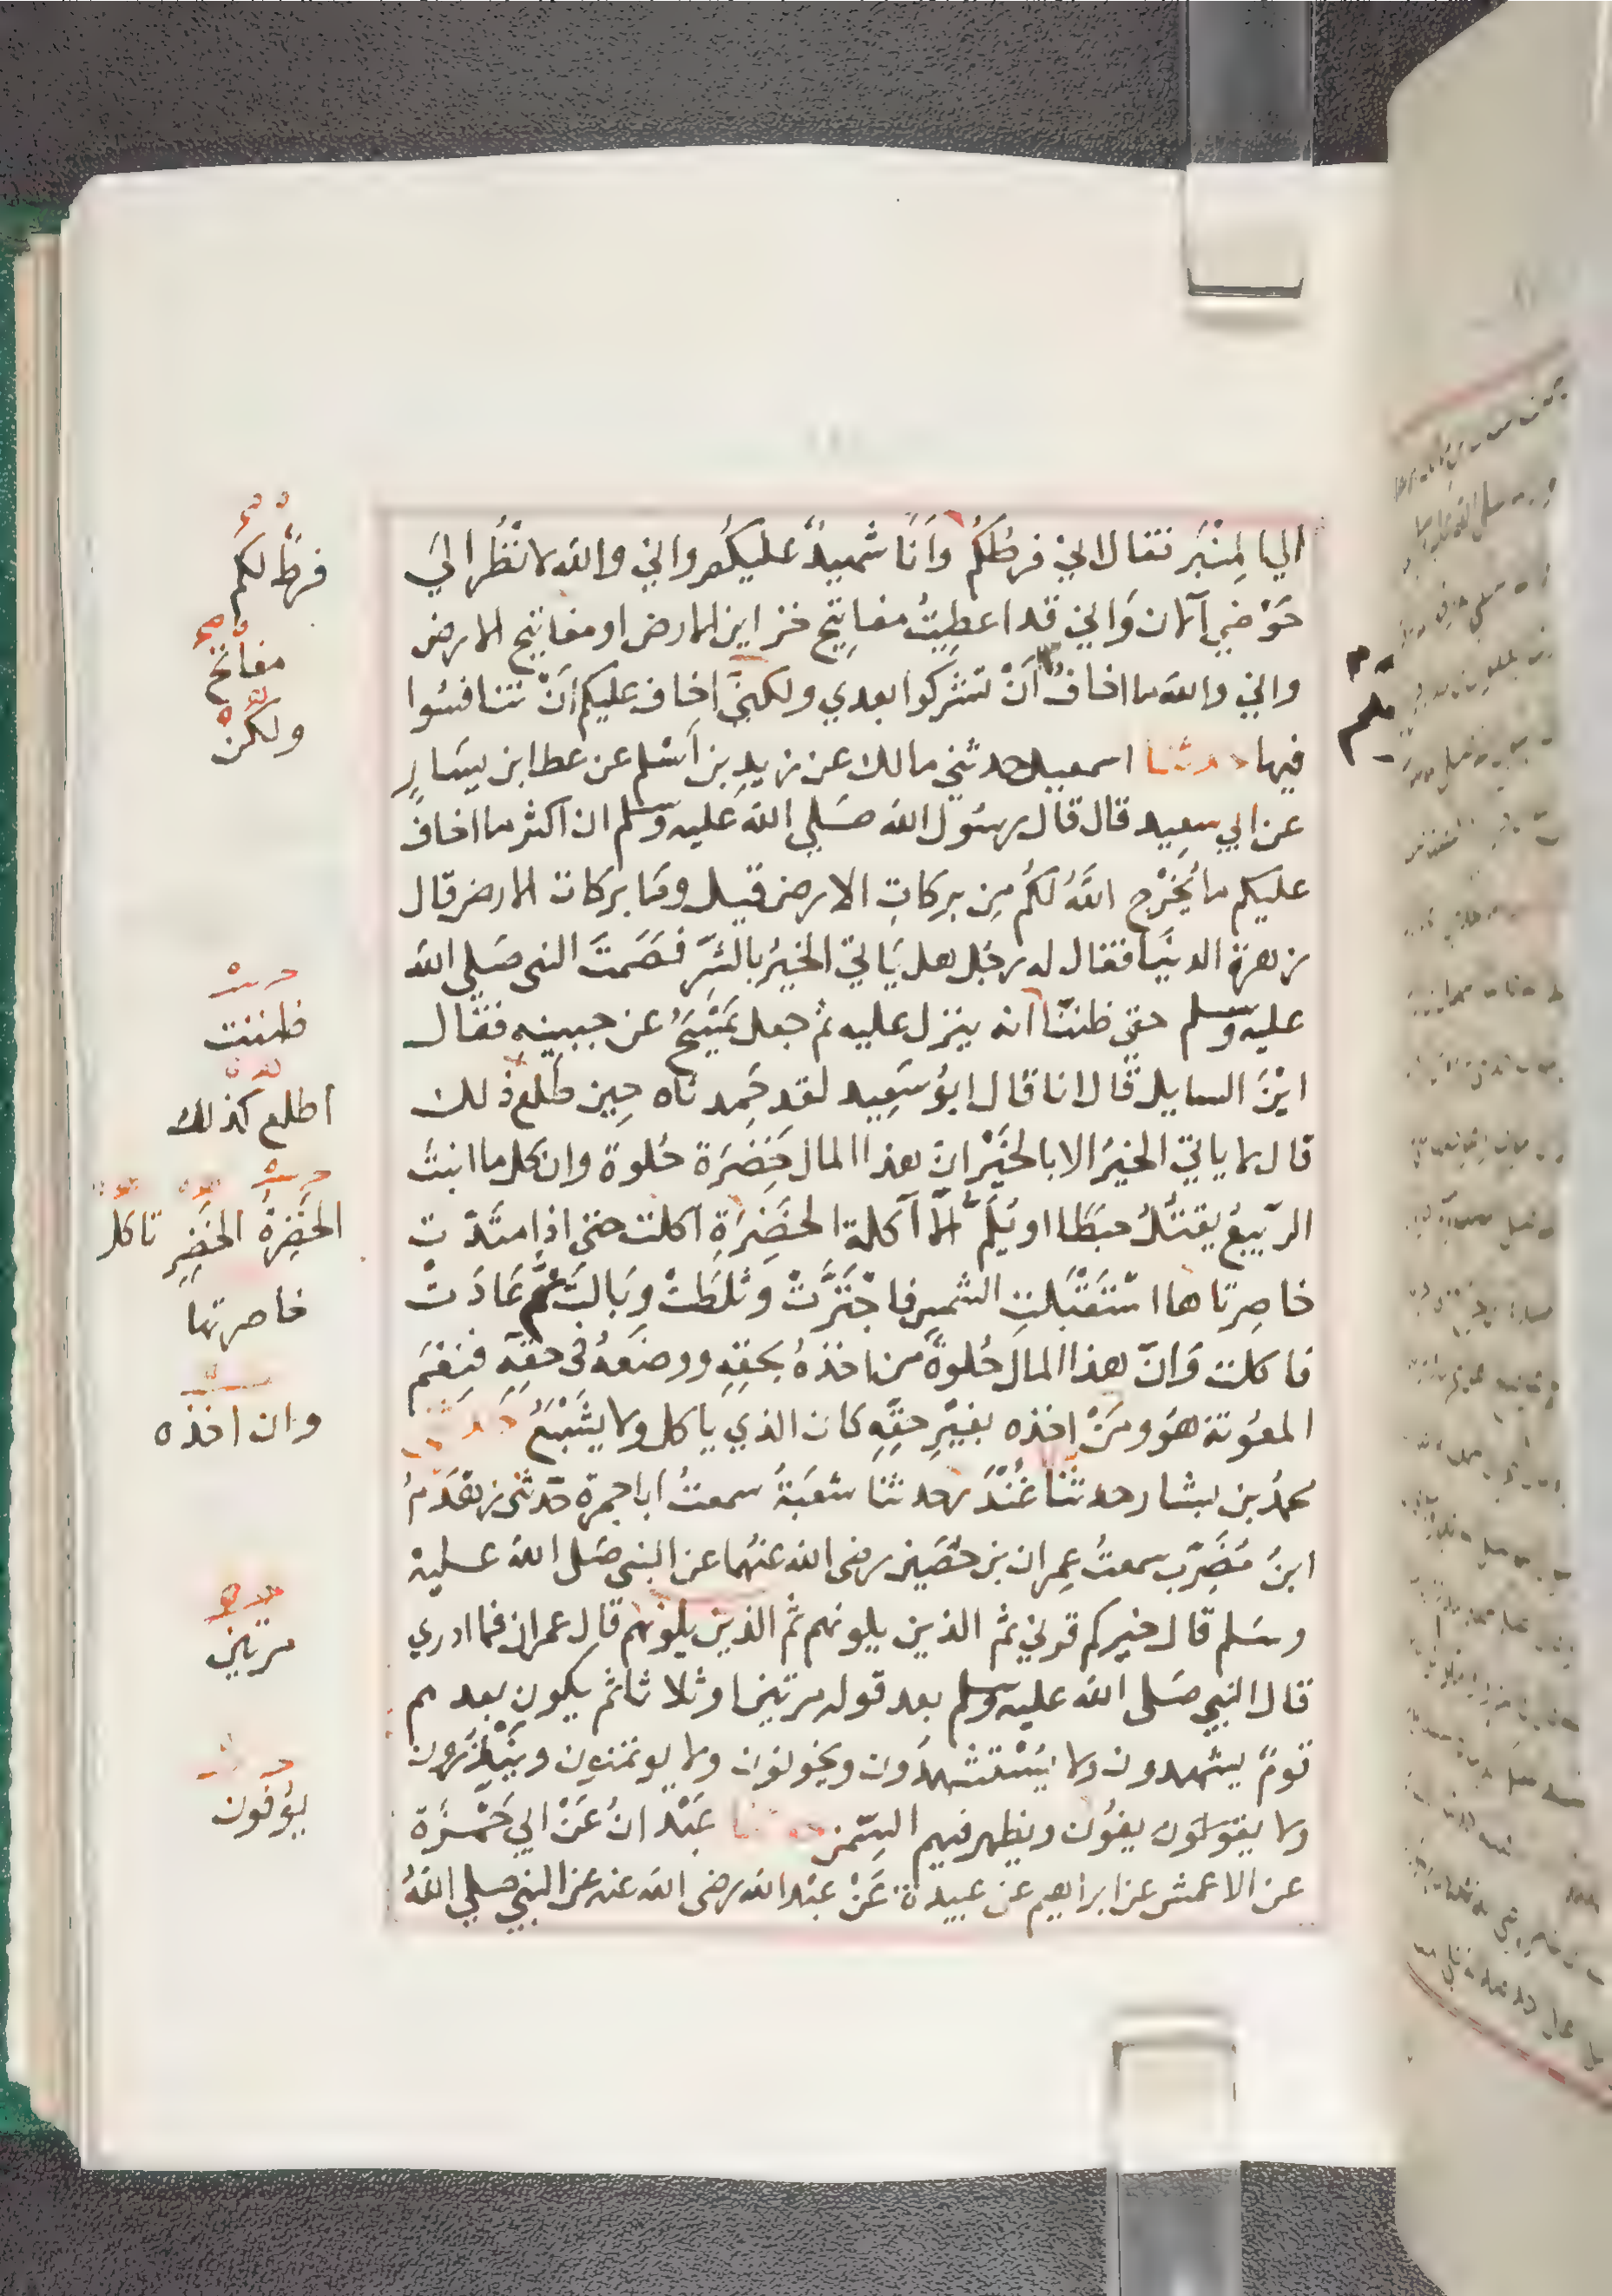 الي المِنْبَر فقال اني فرطُكُم وَاَنَا شَهيدٌ عليكُم واني والله لانظُر الَي
حَوْضِي الان وَاني قد اعطِيتُ مفاتِيح خزاين الارض او مفاتيح الارض
واني والله ما اخافُ اَنْ تشركوا بعدي ولكنِّي اخاف عليكم اَنْ تنافسُوا
فيها حدثنا اسمعيل حدثني مالك عن زيدِ بن اَسْلم عن عطا بن يَسَارٍ
عن ابي سعِيد قال قال رسُول الله صَلي الله عليه وسلم ان اكثر ما اخافُ
عليكم ما يُخْرج اللَّهُ لكُم مِن بركاتِ الارض قيل ومَا بركات الارض قال
زهرة الدنيَا فقال له رجُل هل يَاتي الخيرُ بالشرِّ فصَمَتَ النبى صَلي الله
عليه وسلم حتى ظننّا انه ينزل عليه ثم جعل يَمْسَحُ عن جبينِه فقال
ايْنَ السايل قال انا قال ابوُ سَعِيد لقد حَمِدناه حِين طلع ذلك
قال لا ياتي الخيرُ الا بالخيْر انّ هذا المال خَضِرَة حُلوة وان كل ما انبتَ
الرّبيعُ يقتُلُ حبَطًا او يُلِمُّ الاّ آكلة الخضِرَةِ اكلت حتى اذا امتدّت
خاصِرتاها اسْتَقْبَلتِ الشمس فاجْتَرَّتْ وَثلَطَتْ وبَالَت ثُمَّ عَادَتْ
فاكلت وَانّ هذا المال حُلوةٌ من اخذهُ بحقِهِ ووضعَهُ فى حقِّهِ فنِعْمَ
المعُونة هوَ ومَنْ اخذه بغيْرِ حقِّهِ كان الذي ياكل ولا يشْبَعُ حدثني
محمدُ بن بشار حدثنا غُنْدَر حدثنا شعبَةُ سمعتُ ابا جمرة حَدّثنى زهْدَمُ
ابنُ مُضَرِّب سمعتُ عِمران بن حُصَين رضى الله عنهُما عن النبى صَلى الله عليهْ
وسَلم قال خيركم قرني ثم الذين يلونهم ثم الذين يلونهم قال عمران فما ادري
قال النبي صَلى الله عليه وسلم بعد قوله مرتين او ثلاثا ثم يكون بعدهم
قومٌ يشهدون ولا يُسْتشهدُون ويخونون ولا يوتمنون ويَنْذرُون
ولا يفون ويظهر فيهم السِّمن حدثنا عَبْدانُ عَنْ ابي حَمْزَة
عن الاعمش عن ابراهيم عن عبيدة عَنْ عبْد الله رضى الله عنه عن النبي صلي اللهُ
فرطٌ لكم
مفاتح
ولكنْ
ظننت
اطلع كذلك
الخَضِرةُ الخَضِرِ تاكل
خاصرتها
وان اخذه
مرتين
يوُفون